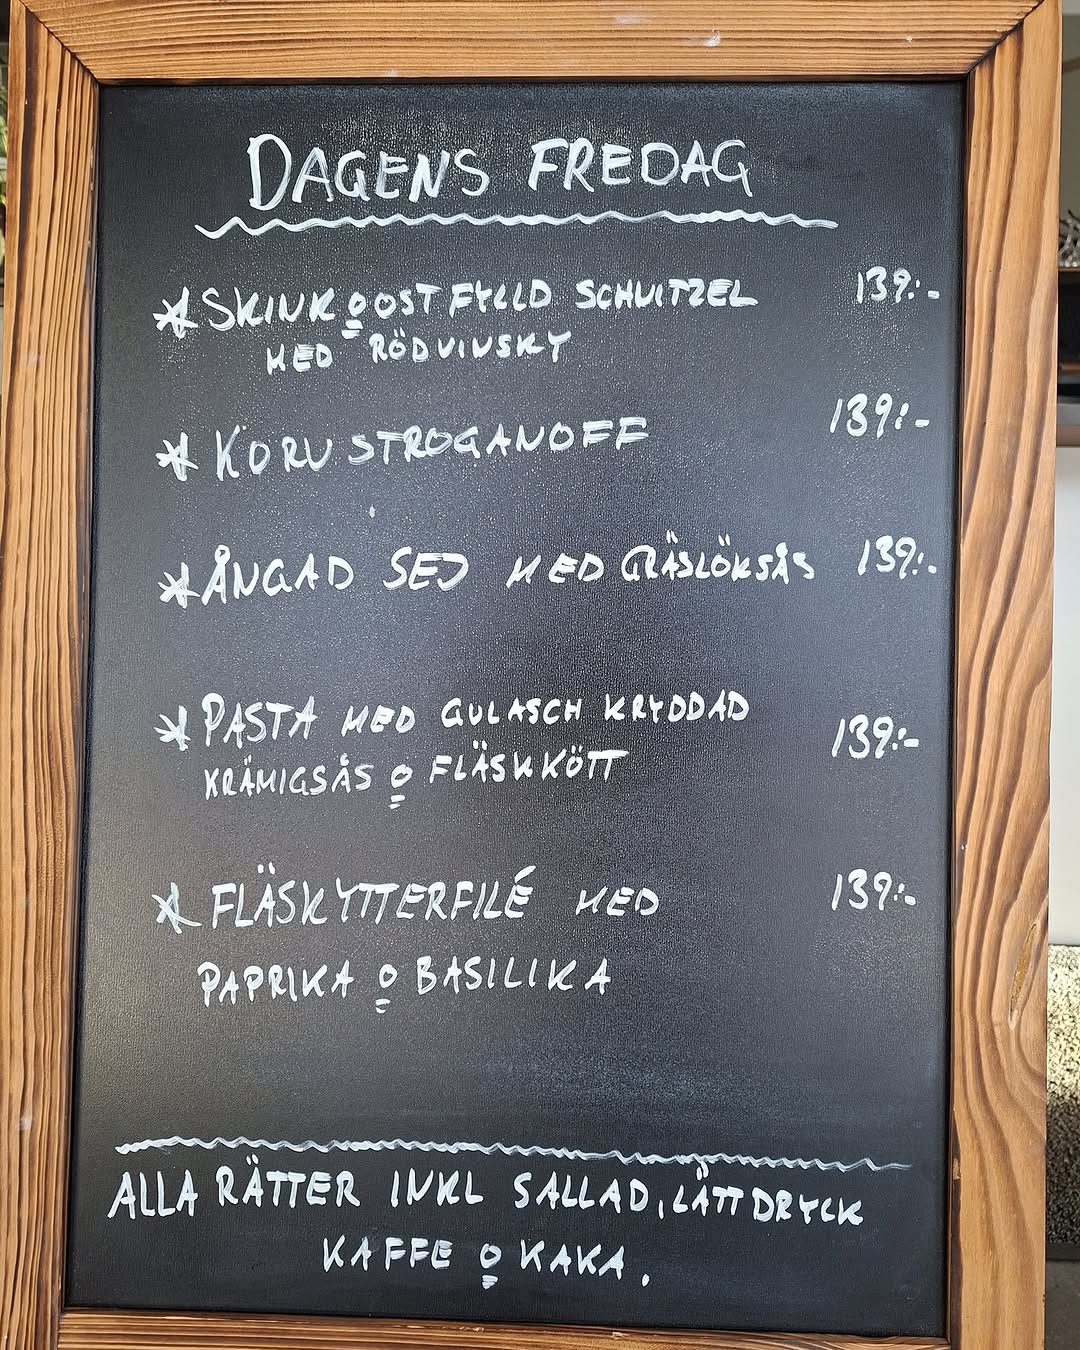 DAGENS FREDAG
*SKINK O OSTFYLLD SCHNITZEL 139:-
MED RÖDVINSKY
*KORV STROGANOFF 139:-
*ÅNGAD SEJ MED GRÄSLÖKSÅS 139:-
*PASTA MED GULASCH KRYDDAD 139:-
KRÄMIGSÅS O FLÄSKKÖTT
*FLÄSKYTTERFILÉ MED 139:-
PAPRIKA O BASILIKA
ALLA RÄTTER INKL SALLAD, LÄTTDRYCK
KAFFE O KAKA.